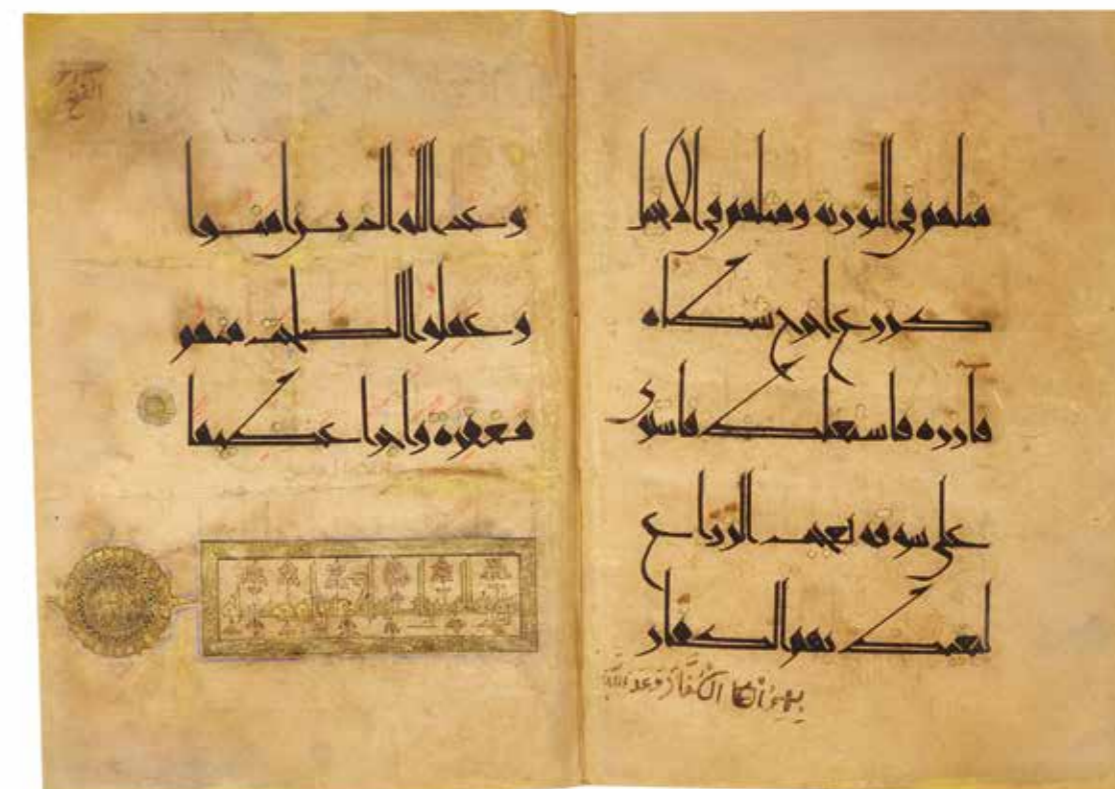 مثلهم في التورىة ومثلهم في الانجيل
كزرع اخرج شطاه
فازره فاستغلظ فاستوى
على سوقه يعجب الزراع
ليغيظ بهم الكفار
بِهِمُ الْكُفَّارَ وَعَدَ اللَّهُ
وعد الله الذين امنوا
وعملوا الصلحت منهم
مغفرة واجرا عظيما